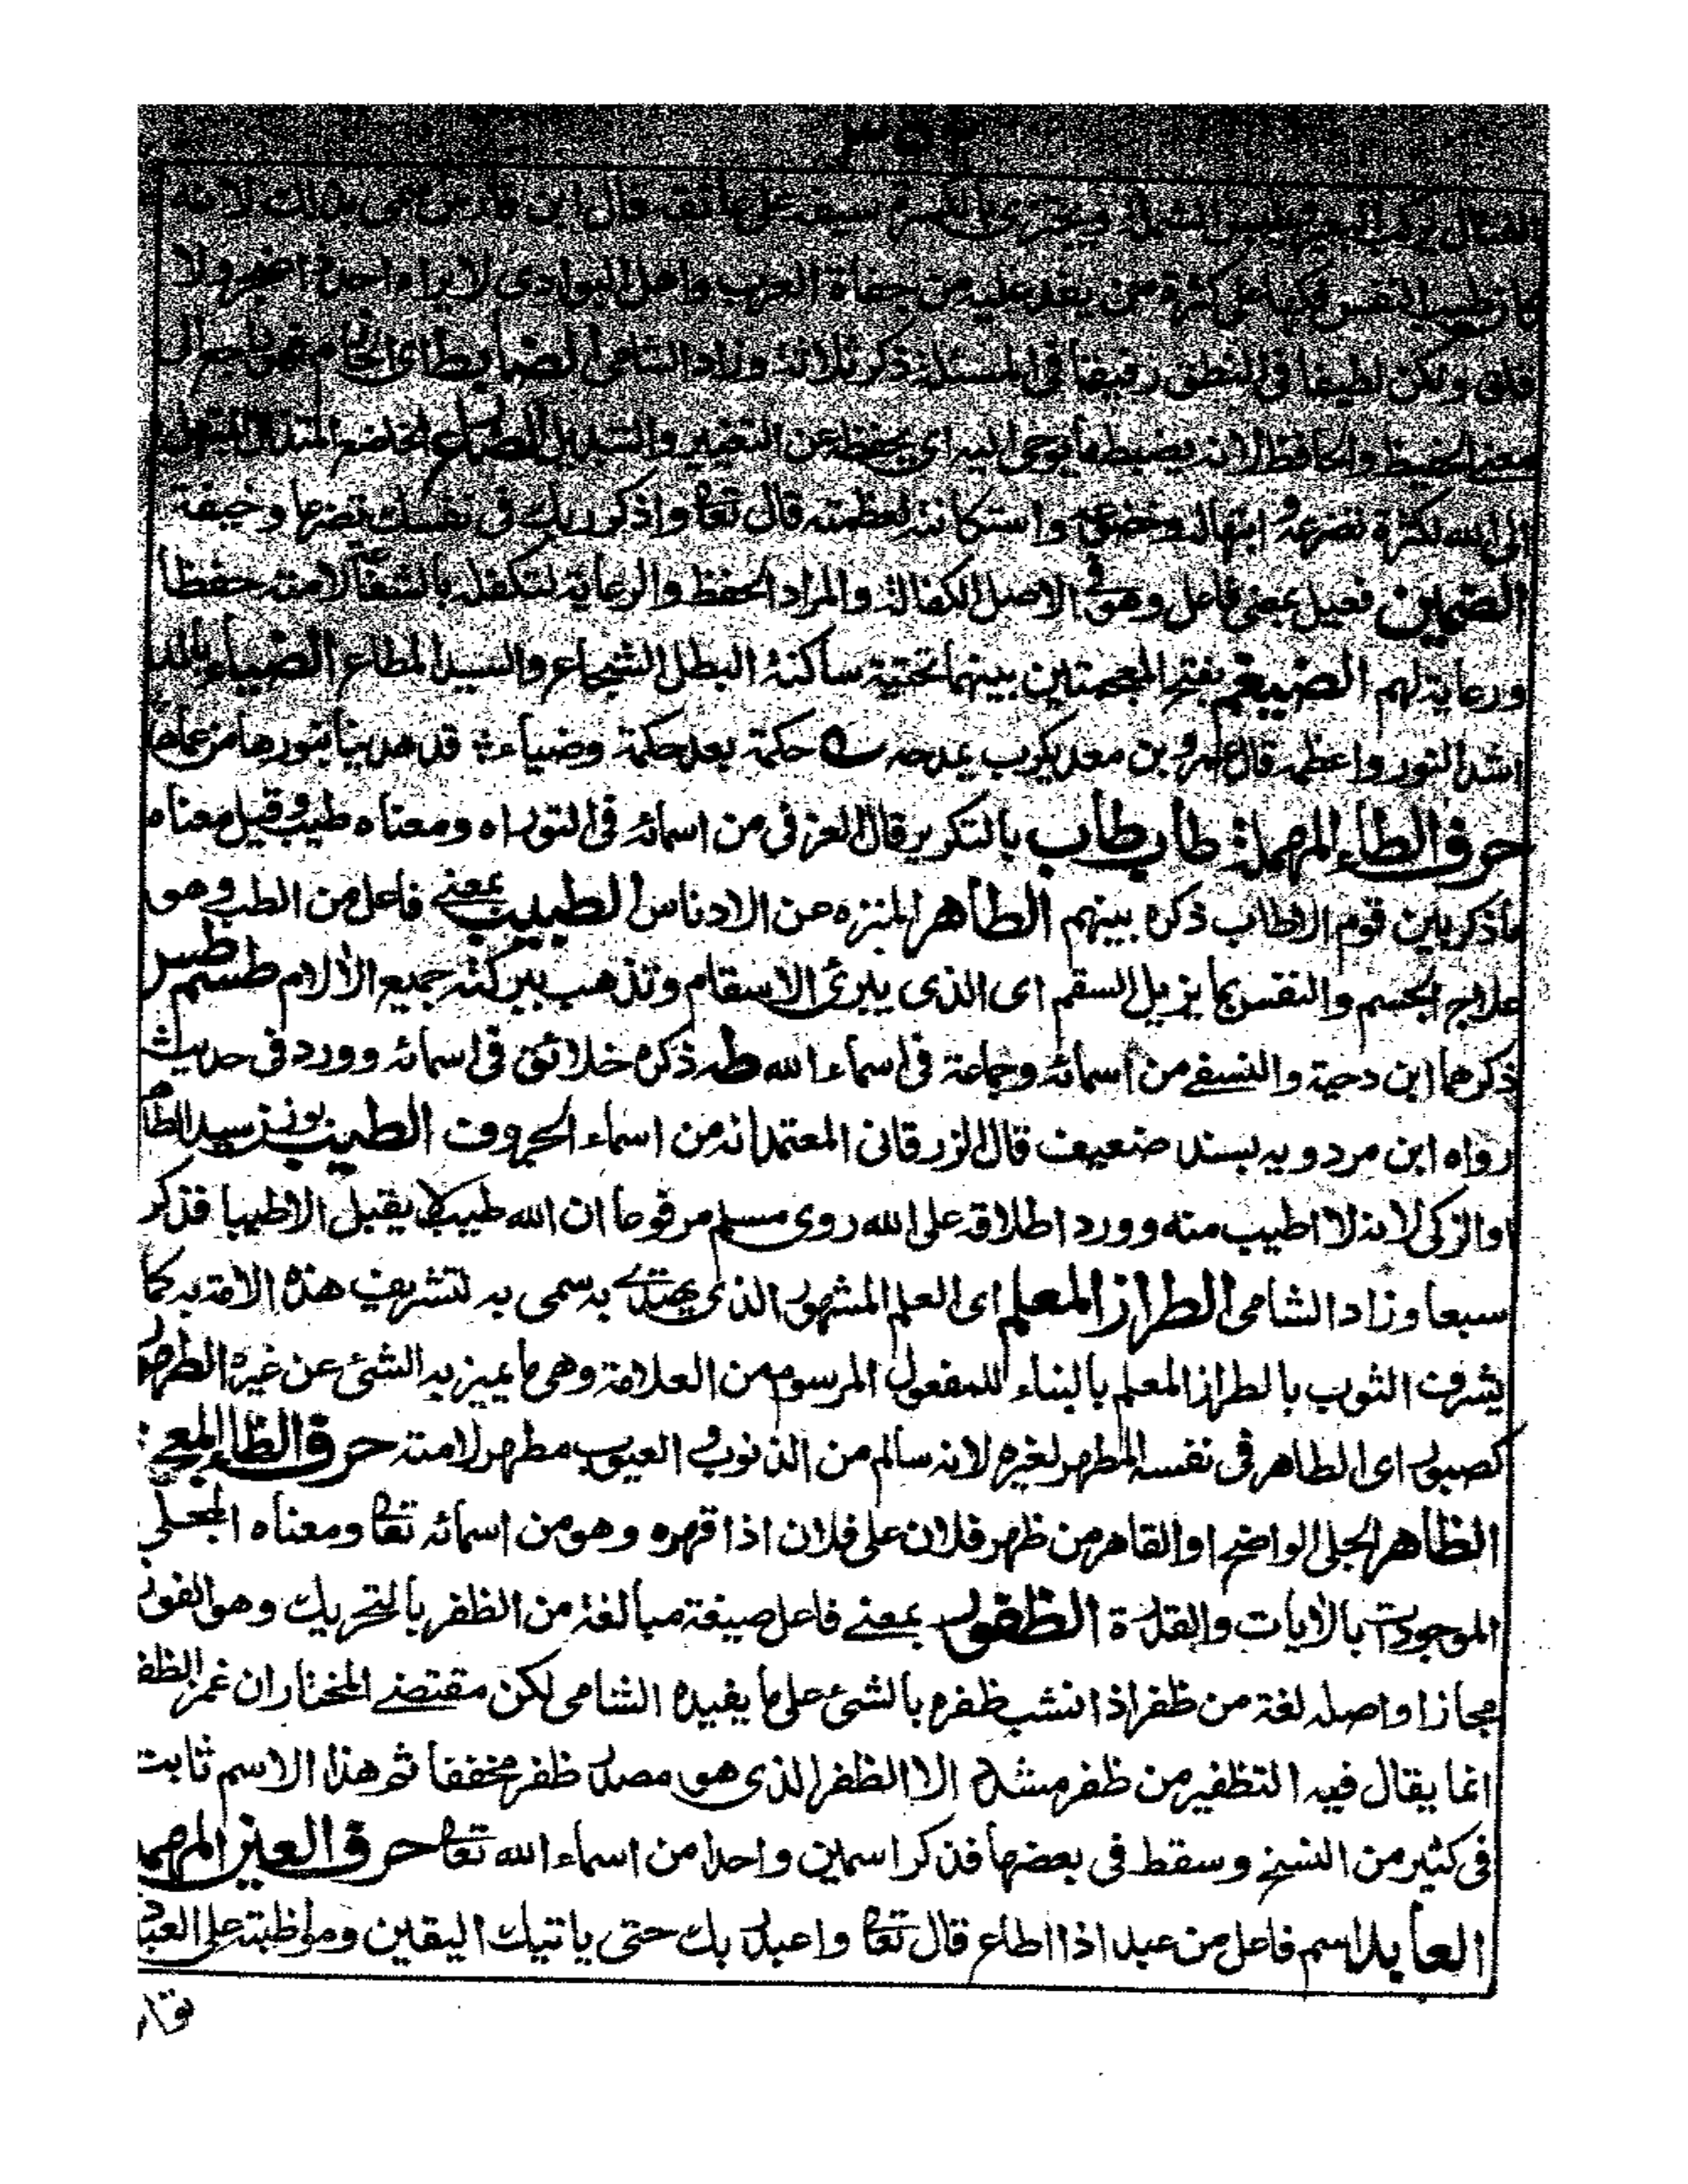 ٣٥٢
القتال يركب البعير ويلبس الشملة ويجتزى بالكسرة سيفه على عاتقه قال ابن فارس سمى بذلك لانه
كان طيب النفس فكها على كثرة من يفد عليه من جفاة العرب واهل البوادى لا يراه احد ذا ضجر ولا
قلق ولكن لطيفا فى النطق رفيقا فى المسئلة ذكر ثلاثة وزاد الشامى الضابط اى الحازم فهو راجع الى
معنى الحفيظ والحافظ لانه يضبط ما يوحى اليه اى يحفظه عن التغيير والتبديل الضارع الخاضع المتذلل المبتهل
الى الله لكثرة تضرعه و ابتهاله وخضوعه واستكانته لعظمته قال تعا واذكر ربك فى نفسك تضرعا وخيفة
الضمين فعيل بمعنى فاعل وهو فى الاصل الكفالة والمراد الحفظ والرعاية لتكفله بالشفاعة لامته حفظا
ورعاية لهم الضيغم بفتح المعجمتين بينهما تحتية ساكنة البطل الشجاع والسيد المطاع الضياء بالمد
اشد النور واعظمه قال عمرو بن معد يكرب يمدحه حكمة بعد حكمة وضياء قد هدينا بنورها من عماها
حرف الطاء المهملة طاب طاب بالتكرير قال العزفى من اسمائه فى التوراه ومعناه طيب وقيل معناه
ماذكر بين قوم الا طاب ذكره بينهم الطاهر المنزه عن الادناس الطبيب بمعنى فاعل من الطب وهو
علاج الجسم والنفس بما يزيل السقم اى الذى يبرئ الاسقام وتذهب ببركته جميع الألام طسم طس
ذكرهما ابن دحية والنسفے من اسمائه وجماعة فى اسماء الله طه ذكره خلائق فى اسمائه وورد فى حديث
رواه ابن مردويه بسند ضعيف قال الزرقانى المعتمد انه من اسماء الحروف الطيب بوزن سيد الطاهر
او الزكى لانه لا اطيب منه وورد اطلاقه على الله روى مسلم مرفوعا ان الله طيب لا يقبل الا طيبا فذكر
سبعا وزاد الشامى الطراز المعلم اى العلم المشهور الذى يهتدى به سمى به لتشريف هذه الامة به كما
يشرف الثوب بالطراز المعلم بالبناء للمفعول المرسوم من العلامة وهى ما يميز به الشئ عن غيره الطهور
كصبور اى الطاهر فى نفسه المطهر لغيره لانه سالم من الذنوب و العيوب مطهر لامته حرف الظاء المعجمة
الظاهر الجلى الواضح او القاهر من ظهر فلان على فلان اذا قهره وهو من اسمائه تعا ومعناه الجلى
الموجودات بالايات والقدرة الظفور بمعنے فاعل صيغة مبالغة من الظفر بالتحريك وهو الفوز
مجازا واصله لغة من ظفر اذا نشب ظفره بالشئ على ما يفيده الشامى لكن مقتضے المختار ان غمز الظفر
انما يقال فيه التظفير من ظفر مشددا لا الظفر الذى هو مصدر ظفر مخففا ثم هذا الاسم ثابت
فى كثير من النسخ وسقط فى بعضها فذكر اسمين واحدا من اسماء الله تعا حرف العين المهملة
العابد اسم فاعل من عبد اذا اطاع قال تعا واعبد ربك حتى ياتيك اليقين ومواظبته على العبادة